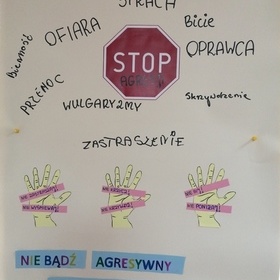 STRACH
Bicie
OFIARA
Bierność
OPRAWCA
STOP
AGRESJI
PRZEMOC
WULGARYZMY
Skrzywdzenie
ZASTRASZENIE
NIE BĄDŹ AGRESYWNY